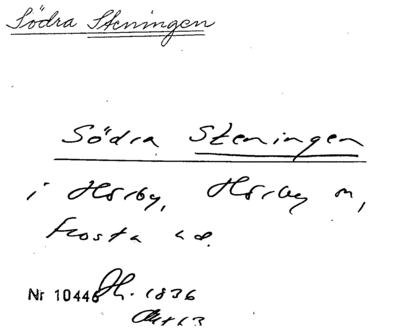 Södra Steningen
Södra Steningen
i Hörby, Hörby sn,
Frosta hd.
Nr 10446 Jh. 1836